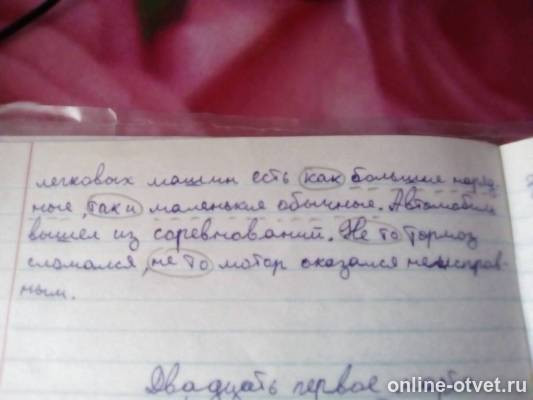 легковых машин есть как большие наряд-
ные, так и маленькие обычные. Автомобиль
вышел из соревнований. Не то тормоз
сломался, не то мотор оказался неисправ-
ным.
Двадцать первое
online-otvet.ru